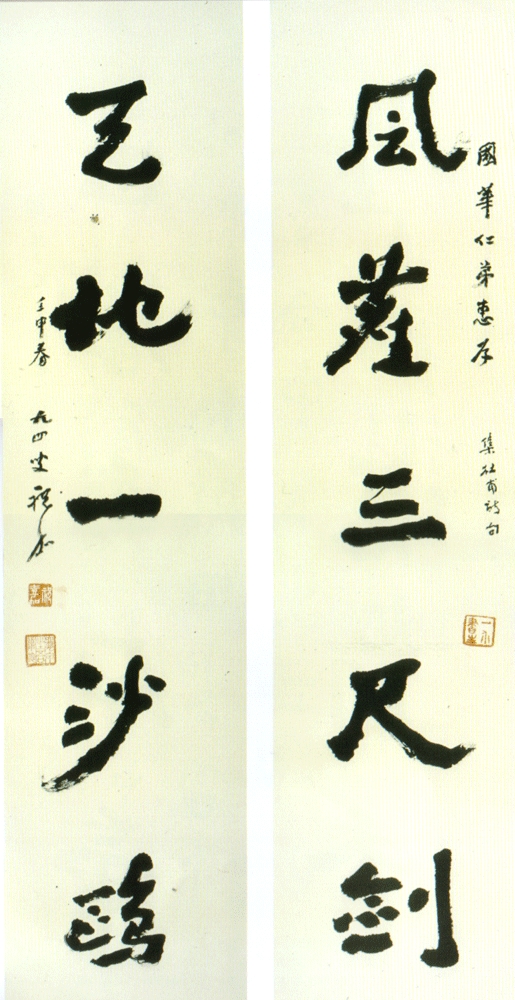 國華仁弟惠存
集杜甫詩句
風塵三尺劍
天地一沙鷗
壬申春
九四叟